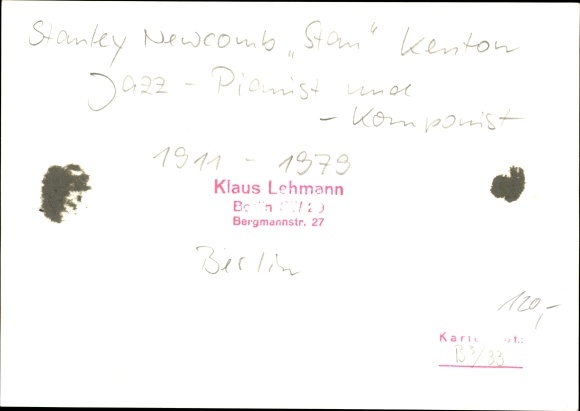 Stanley Newcomb „Stan“ Kenton
Jazz - Pianist und
- Komponist
1911 - 1979
Klaus Lehmann
Bergmannstr. 27
Berlin
120,-
B³/33